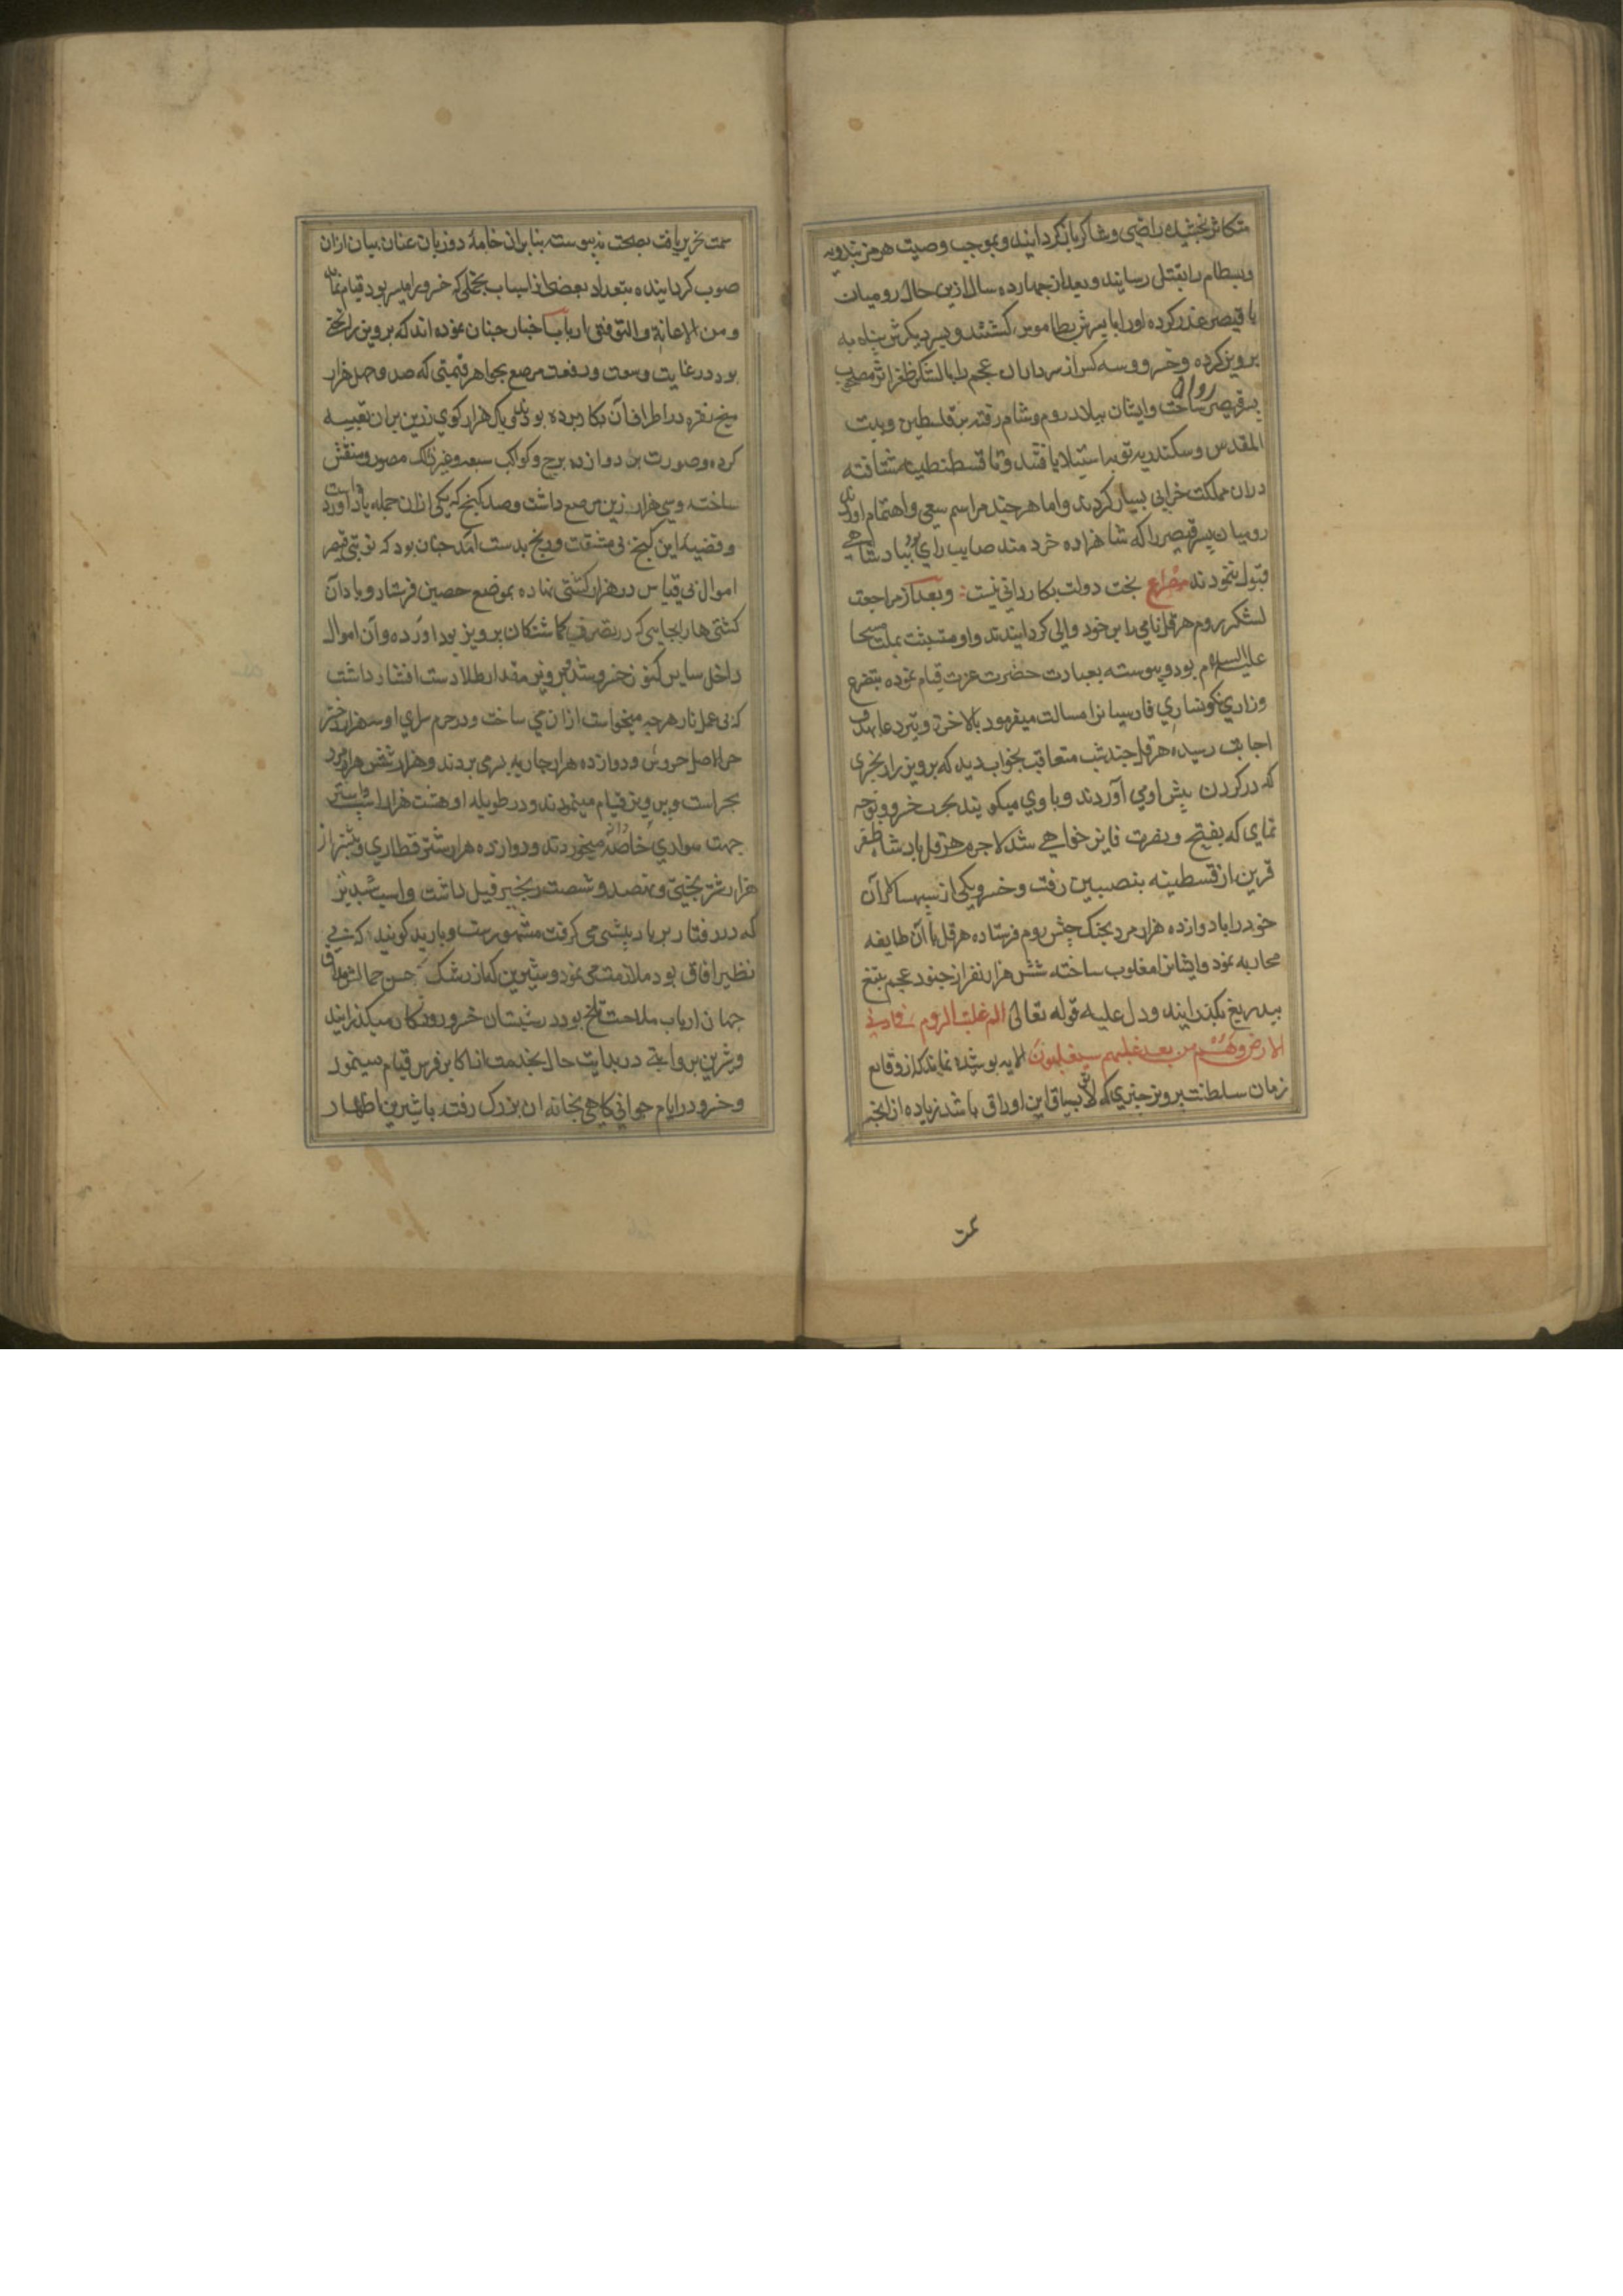 متکاثر بخشیده راضی و شاکر باز کردانید و بموجب وصیت هرمز بندویه
و بسطام را بقتل رسانید و بعد از چهارده سال ازین حال رومیان
با قیصر غدر کرده او را با پسرش کشتند و پسر دیکرش پناه به
پرویز کرده و خسرو سه کس از سرداران عجم را با لشکر ظفر اثر مصحوب
پسر قیصر روان ساخت و ایشان ببلاد روم و شام رفته بر فلسطین و بیت
المقدس و سکندریه و نوبه استیلا یافتند و تا قسطنطیه شتافته
دران مملکت خرابی بسیار کردند و اما هر چند مراسم سعی و اهتمام اوردند
رومیان پسر قیصر را که شاهزاده خردمند صایب رای بود بپادشاهی
قبول ننمودند مصراع بخت دولت بکاردانی نیست و بعد از مراجعت
لشکر روم هرقل نامی را بر خود والی کردانیدند و او متشبث بملت مسیحا
علیه السلام بود و پیوسته بعبادت حضرت عزت قیام نموده بتضرع
و زاری نکونساری فارسیانرا مسالت میفرمود بالاخره و تیر دعا بهدف
اجابت رسیده هرقل چند شب متعاقب بخواب دید که پرویز را زنجیری
که در کردن پیش او می آوردند و با وی میکویند بحرب خسرو توجه
نمای که بفتح و نصرت فایز خواهی شد لاجرم هرقل پادشاه ظفر
قرین از قسطنیه بنصیبین رفت و خسرو یکی از سپهسالاران
خود را با دوازده هزار مرد بجنک جیش روم فرستاده هرقل با آن طایفه
محاربه نمود و ایشانرا مغلوب ساخته شش هزار نفر از جنود عجم بتیغ
بیدریغ بکذرانید و دل علیه قوله تعالی الم غلبت الروم فی ادنی
الارض و هم من بعد غلبهم سیغلبون الایه پوشیده نماند که از وقایع
زمان سلطنت پرویز چیزی که لایق بسیاق این اوراق باشد زیاده از انچه
سمت
سمت تحریر یافت بصحت نه پیوست بنا بران خامهٔ دو زبان عنان بیان ازان
صوب کردانیده بتعداد بعضی از اسباب تجملی که خسرو را میسر بود قیام نماید
و من الاعانة و التوفیق ارباب اخبار چنان نموده اند که پرویز را تختی
بود در غایت وسعت و رفعت مرصع بجواهر قیمتی که صد و چهل هزار
میخ نقره در اطراف آن بکار برده بودند و یک هزار کوی زرین بران تعبیه
کرده و صورت دوازده برج و کواکب سبعه و غیر ذلک مصور و منقش
ساخته و سی هزار زین مرصع داشت و صد کنج که یکی ازان جمله باد آورد است
و قضیهٔ این کنج بی مشقت و رنج بدست امد چنان بود که نوبتی قیصر
اموال بی قیاس در هزار کشتی نهاده بموضع حصین فرستاد و باد آن
کشتی ها را بجایی که در تصرف کماشتکان پرویز بود اورده و آن اموال
داخل سایر کنوز خسرو شد پرویز مقدار طلا دست افشار داشت
که بی عمل نار هرچه میخواست ازان می ساخت و در حرم سرای او سه هزار دختر
حر الاصل و دوازده هزار جاریه بسر می بردند و هزار شش هزار مرد
بحراست پرویز قیام مینمودند و در طویله او هشت هزار اسب و استر
جهت سواری خاصه میخوردند و دوازده هزار شتر قطاری و بیست هزار
هزار شتر بختی و نهصد و شصت زنجیر فیل داشت و اسب شبدیز
که در رفتار بر باد پیشی می کرفت مشهورست و باربد کوینده که بی
نظیر افاق بود ملازمت می نمود و شیرین که از رشک حسن جمالش مذاق
جهان ارباب ملاحت تلخ بود در شبستان خسرو روزکار میکذرانید
و شیرین بروایتی در بدایت حال بخدمت از اکابر فرس قیام مینمود
و خسرو در ایام جوانی کاهی بخانه ان بزرک رفته با شیرین اظهار